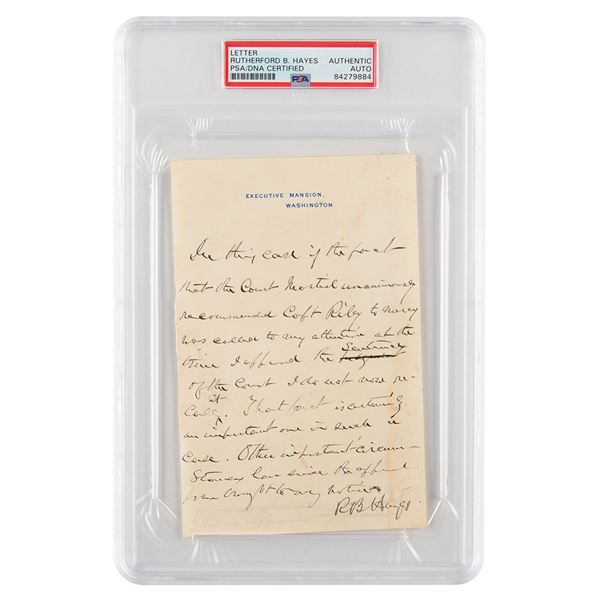 LETTER
RUTHERFORD B. HAYES AUTHENTIC
PSA/DNA CERTIFIED AUTO
PSA 84279884
EXECUTIVE MANSION,
WASHINGTON.
In this case if the fact
that the Court Martial unanimously
recommended Capt Riley to mercy
was called to my attention at the
time I approved the Sentence
of the Court I do not now re-
call it. That fact is certainly
an important one in such a
case. Other important circum-
stances have since the
been brought to my notice
R B Hayes.